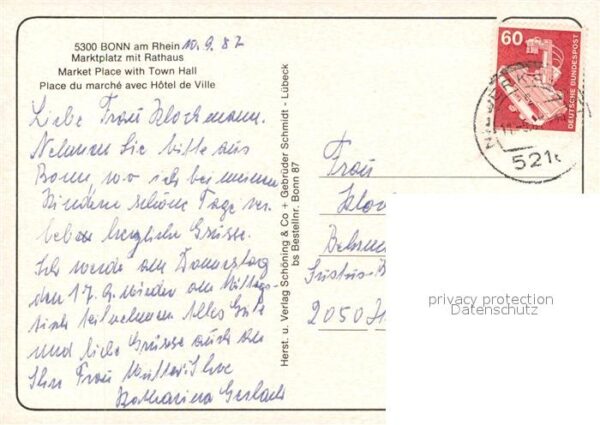 5300 BONN am Rhein 10.9.82
Marktplatz mit Rathaus
Market Place with Town Hall
Place du marché avec Hôtel de Ville
Liebe Frau Klochmann.
Nehmen Sie bitte aus
Bonn, wo ich bei meinen
Kindern schöne Tage ver
lebe herzliche Grüsse.
Ich werde am Donnerstag
den 17.9. wieder am Mittags-
tisch teilnehmen. Alles Gute
und liebe Grüsse auch an
Ihre Frau Mutter Ihre
Katharina Gerlach
Herst. u. Verlag Schöning & Co + Gebrüder Schmidt - Lübeck
bs Bestellnr. Bonn 87
60
DEUTSCHE BUNDESPOST
521
Frau
Justus-B
2050 H
privacy protection
Datenschutz